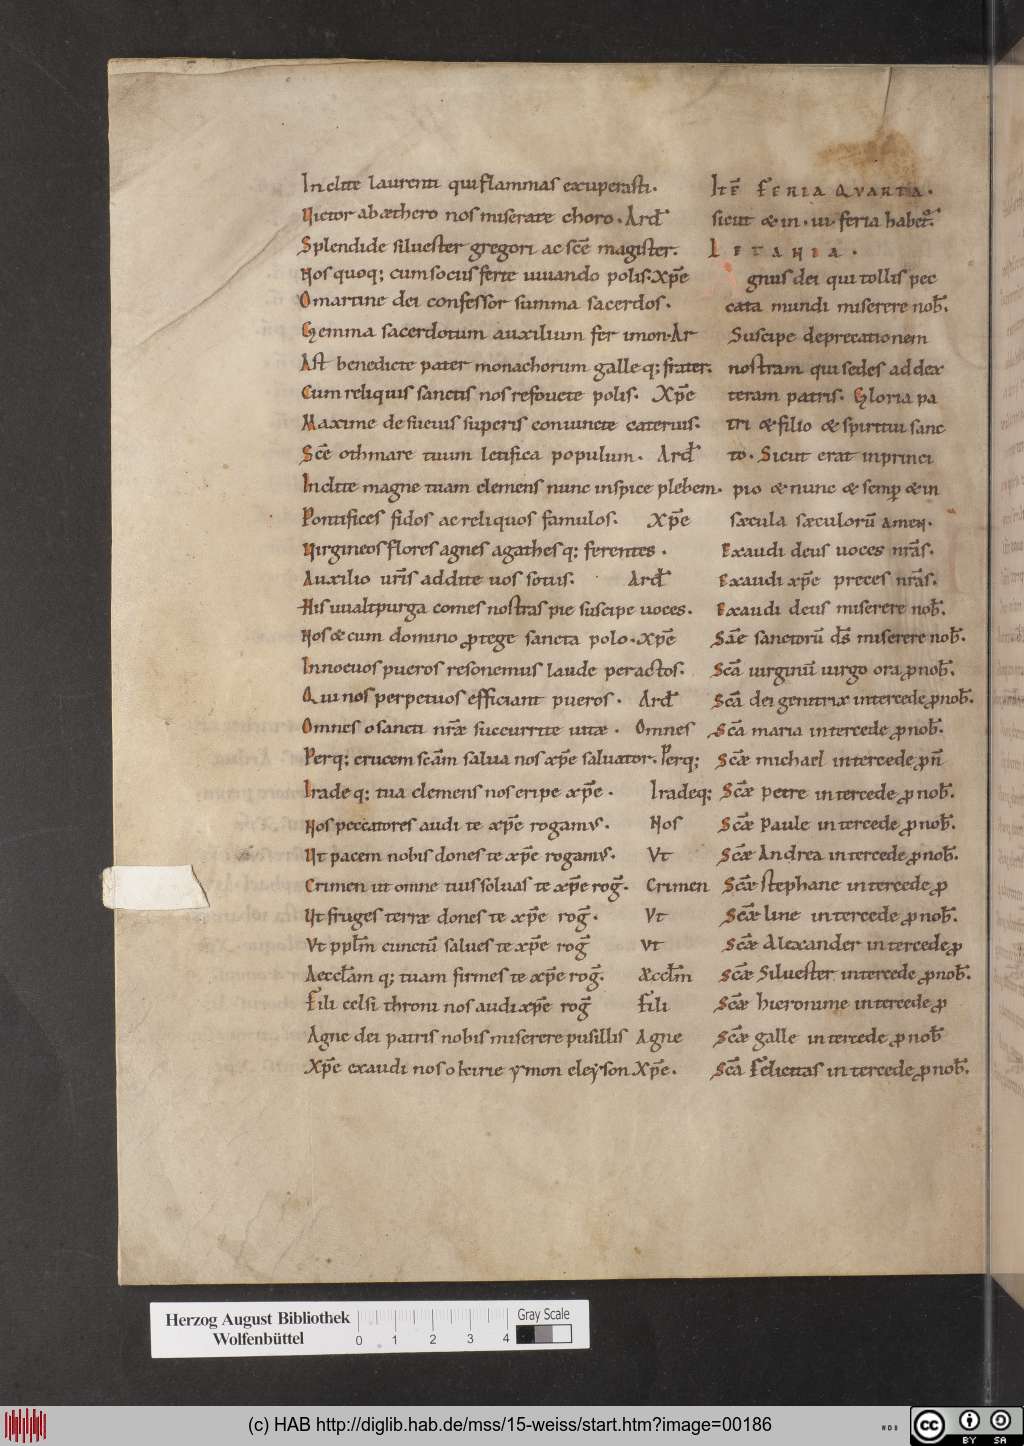 Inclite laurenti qui flammas exuperasti.
Victor ab æthero nos miserate choro. Ard̄
Splendide siluester gregori ac sc̄e magister.
Nos quoq; cum sociis ferte iuuando polis. Xp̄e
O martine dei confessor summa sacerdos.
Gemma sacerdotum auxilium fer imon. Ar
Ast benedicte pater monachorum galle q; frater.
Cum reliquis sanctis nos refouete polis. Xp̄e
Maxime de sueuis superis coniuncte cateruis.
Sc̄e othmare tuum letifica populum. Ard̄
Inclite magne tuam clemens nunc inspice plebem.
Pontifices fidos ac reliquos famulos. Xp̄e
Virgineos flores agnes agathes q; ferentes.
Auxilio ur̄is addite uos sotiis. Ard̄
His uualtpurga comes nostras pie suscipe uoces.
Nos & cum domino ꝓtege sancta polo. Xp̄e
Innocuos pueros resonemus laude peractos.
Qui nos perpetuos efficiant pueros. Ard̄
Omnes o sancti nr̄æ succurrite uitæ. Omnes
Perq; crucem sc̄am salua nos xp̄e saluator. Perq;
Irade q; tua clemens nos eripe xp̄e. Iradeq;
Nos peccatores audi te xp̄e rogamus. Nos
Ut pacem nobis dones te xp̄e rogamus. Vt
Crimen ut omne tuis soluas te xp̄e roḡ. Crimen
Ut fruges terræ dones te xp̄e roḡ. Vt
Vt ppl̄m cunctū salues te xp̄e roḡ Vt
Aeccl̄am q; tuam firmes te xp̄e roḡ. Æccl̄m
Fili celsi throni nos audi xp̄e roḡ Fili
Agne dei patris nobis miserere pusillis Agne
Xp̄e exaudi nos o kirie ymon eleyson Xp̄e.
Itē FERIA QVARTA.
sicut & in .ui. feria habet᷑.
LETANIA.
gnus dei qui tollis pec
cata mundi miserere nob̄.
Suscipe deprecationem
nostram qui sedes ad dex
teram patris. Gloria pa
tri & filio & spiritui sanc
to. Sicut erat in princi
pio & nunc & semꝑ & in
sæcula sæculorū AMEN.
Exaudi deus uoces nr̄as.
Exaudi xp̄e preces nr̄as.
Exaudi deus miserere nob̄.
Sc̄e sanctorū ds̄ miserere nob̄.
Sc̄a uirginū uirgo ora ꝓ nob̄.
Sc̄a dei genitrix intercede ꝓ nob̄.
Sc̄a maria intercede ꝓ nob̄.
Sc̄æ michael intercede ꝓ n̄
Sc̄æ petre intercede ꝓ nob̄.
Sc̄æ Paule intercede ꝓ nob̄.
Sc̄æ Andrea intercede ꝓ nob̄.
Sc̄æ stephane intercede ꝓ
Sc̄æ line intercede ꝓ nob̄.
Sc̄æ Alexander intercede ꝓ
Sc̄æ Siluester intercede ꝓ nob̄.
Sc̄æ hieronime intercede ꝓ
Sc̄æ galle intercede ꝓ nob̄
Sc̄a Felicitas intercede ꝓ nob̄.
Herzog August Bibliothek
Wolfenbüttel
0 1 2 3 4
Gray Scale
(c) HAB http://diglib.hab.de/mss/15-weiss/start.htm?image=00186
WDB
cc BY SA